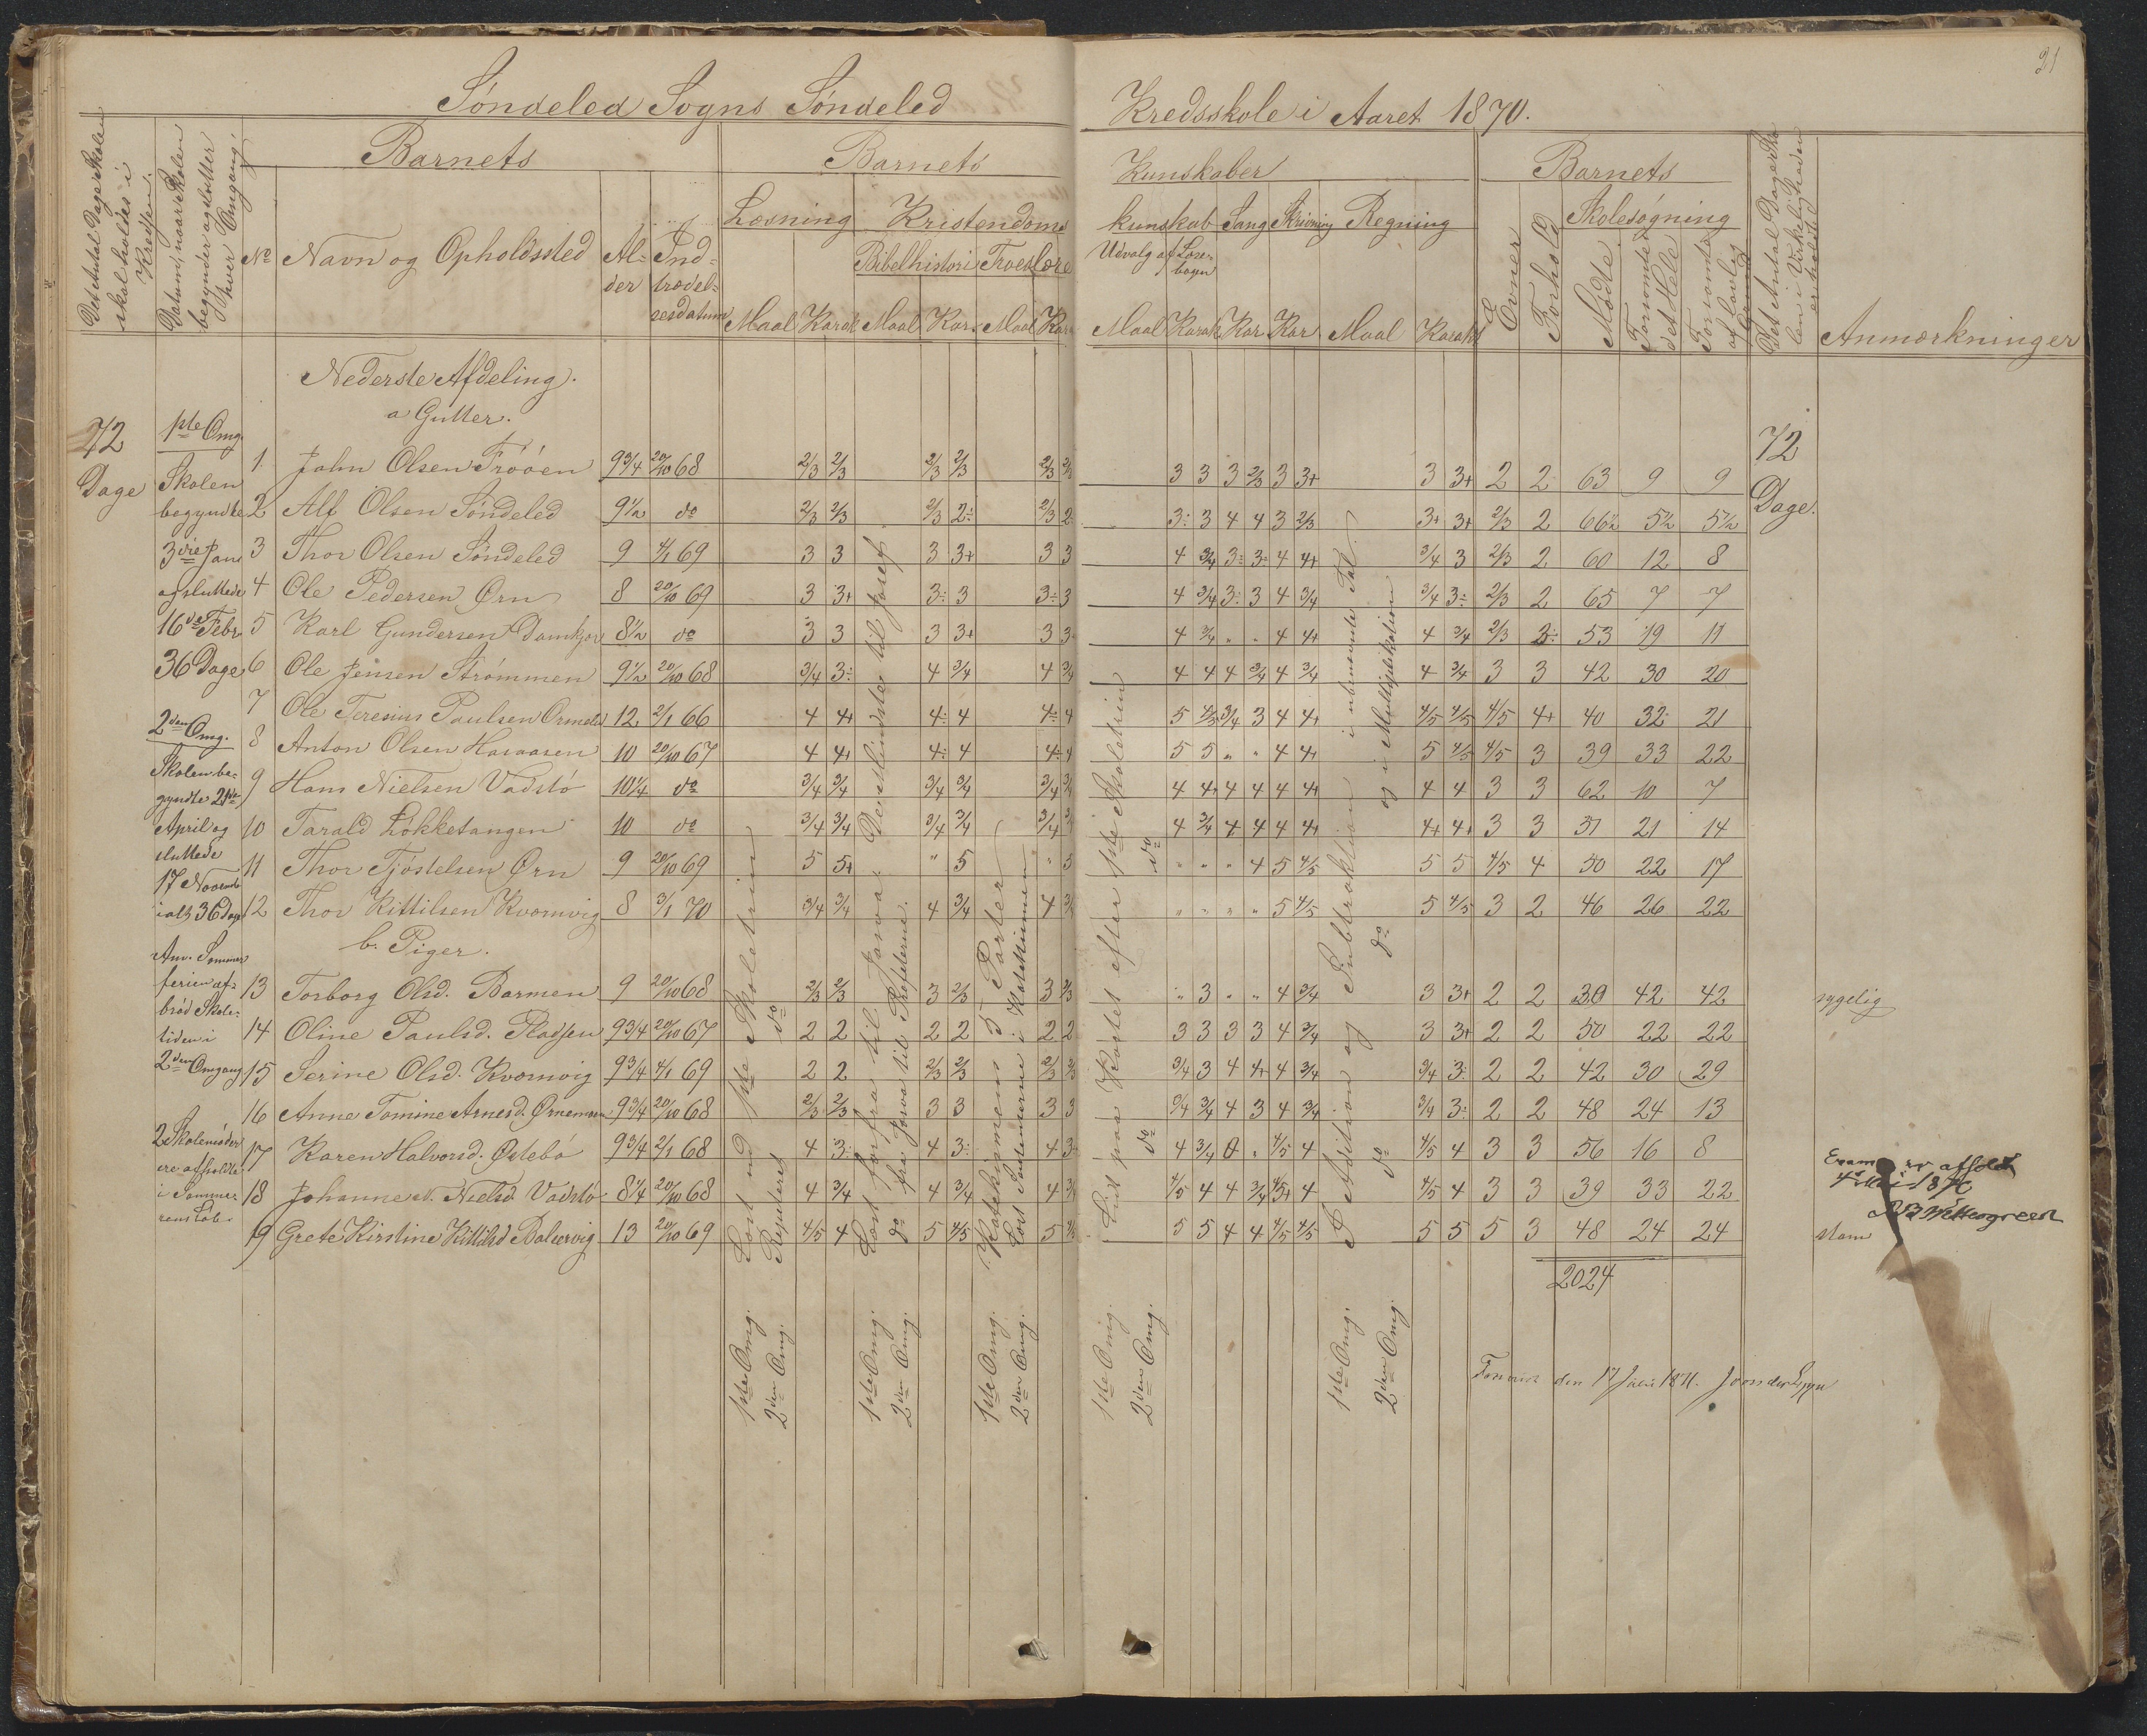 21
Søndeled Sogns Søndeled Kredsskole i Aaret 1870.
Det Antal Dage Skolen skal holdes i Kredsen.
Datum, naar Skolen begynder og slutter hver Omgang
Barnets
No
Navn og Opholdssted
Alder
Indtrædelsesdatum
Barnets Kunskaber
Læsning
Maal Karak
Kristendomskunskab
Bibelhistori
Maal Kar.
Troeslære
Maal Kar.
Udvalg af Læsebogen
Maal Karak
Sang
Kar
Skrivning
Kar
Regning
Maal Karakt
Barnets
Evner
Forhold
Skolesøgning
Mødte
Forsømte det Hele
Forsømte af lovlig Grund
Det Antal Dage Skolen i Virkeligheden er holdt
Anmærkninger
72
Dage
1ste Omg.
Skolen
begyndte
3die Janr
afsluttede
16de Febr
36 Dage
2den Omg.
Skolen be-
gyndte 21de
April og
sluttede
17 Novemb
ialt 36 Dage
Anm. Sommer
ferien af-
brød Skole-
tiden i
2den Omgang
2 Skolemøder
ere afholdte
i Sommer
rens Løb.
Nederste Afdeling.
a Gutter.
1 John Olsen Frøøen 9 3/4 20/10 68 2/3 2/3 2/3 2/3 2/3 3 3 3 2/3 3 3+ 3 3+ 2 2 63 9 9
2 Alf Olsen Søndeled 9 1/2 do 2/3 2/3 2/3 2÷ 2/3 2 3÷ 3 4 4 3 2/3 3+ 3+ 2/3 2 66 1/2 5 1/2 5 1/2
3 Thor Olsen Søndeled 9 4/1 69 3 3 3 3+ 3 3 4 3/4 3÷ 3÷ 4 4+ 3/4 3 2/3 2 60 12 8
4 Ole Pedersen Ørn 8 20/10 69 3 3+ 3÷ 3 3÷ 3 4 3/4 3÷ 3 4 3/4 3/4 3÷ 2/3 2 65 7 7
5 Karl Gundersen Damkjær 8 1/2 do 3 3 3 3+ 3 3 4 3/4 " " 4 4+ 4 3/4 2/3 2÷ 53 19 11
6 Ole Jensen Strømmen 9 1/2 20/10 68 3/4 3÷ 4 3/4 4 3/4 4 4 4 3/4 4 3/4 4 3/4 3 3 42 30 20
7 Ole Teresius Paulsen 12 2/1 66 4 4+ 4÷ 4 4÷ 4 5 4/5 3/4 3 4 4+ 4/5 4/5 4/5 4+ 40 32 21
8 Anton Olsen Hasaasen 10 20/10 67 4 4+ 4÷ 4 4÷ 4 5 5 " " 4 4+ 5 4/5 4/5 3 39 33 22
9 Hans Nielsen Vadstø 10 1/4 do 3/4 3/4 3/4 3/4 3/4 3/4 4 4+ 4 4 4 4+ 4 4 3 3 62 10 7
10 Tarald Løkketangen 10 do 3/4 3/4 3/4 3/4 3/4 4 3/4 4 4 4 4+ 4+ 4+ 3 3 51 21 14
11 Thor Tjøstelsen Ørn 9 20/10 69 5 5+ " 5 " 5 " " " 4 5 4/5 5 5 4/5 4 50 22 17
12 Thor Kittilsen Kvomvig 8 3/1 70 3/4 3/4 4 3/4 4 3/4 " " " " 5 4/5 5 4/5 3 2 46 26 22
b. Piger.
13 Torborg Olsd. Barmen 9 20/10 68 2/3 2/3 3 2/3 3 2/3 " 3 " " 4 3/4 3 3+ 2 2 30 42 42 sygelig
14 Oline Paulsd. Pladsen 9 3/4 20/10 67 2 2 2 2 2 2 3 3 3 3 4 3/4 3 3+ 2 2 50 22 22
15 Serine Olsd. Kvomvig 9 3/4 4/1 69 2 2 2/3 2/3 2/3 2/3 3/4 3 4 4+ 4 3/4 3/4 3÷ 2 2 42 30 29
16 Anne Tomine Arnesd. 9 3/4 20/10 68 2/3 2/3 3 3 3 3 3/4 3/4 4 3 4 3/4 3/4 3÷ 2 2 48 24 13
17 Karen Halvorsd. Østebø 9 3/4 2/1 68 4 3÷ 4 3÷ 4 3÷ 4 3/4 0 " 4/5 4 4/5 4 3 3 56 16 8
18 Johanne M. Nielsd Vadstø 8 1/4 20/10 68 4 3/4 4 3/4 4 3/4 4/5 4 4 3/4 4/5+ 4 4/5 4 3 3 39 33 22
19 Grete Kirstine Kittilsd 13 20/10 69 4/5 4 5 4/5 5 4/5 5 5 4 4 4/5 4/5 5 5 5 3 48 24 24 stam
2024
72
Dage.
1ste Omg. Læst ud 1ste Skoletrin
2den Omg. Repeteret do
1ste Omg. Læst forfra til Josva. De istlindste til Josef
2den Omg. do fra Josva til Profeterne.
1ste Omg. Katekismens 5 Parter
2den Omg. Læst i Katekismen
1ste Omg. Lidt paa Kostet efter 1ste Skoletrin
2den Omg. do do
1ste Omg. I Adition og Subtraktion i ubenævnte Tal.
2den Omg. do do og i Multiplikation
Examen er afholdt
4de Mai 1870
Wettergreen
den 17 Juni 1871.